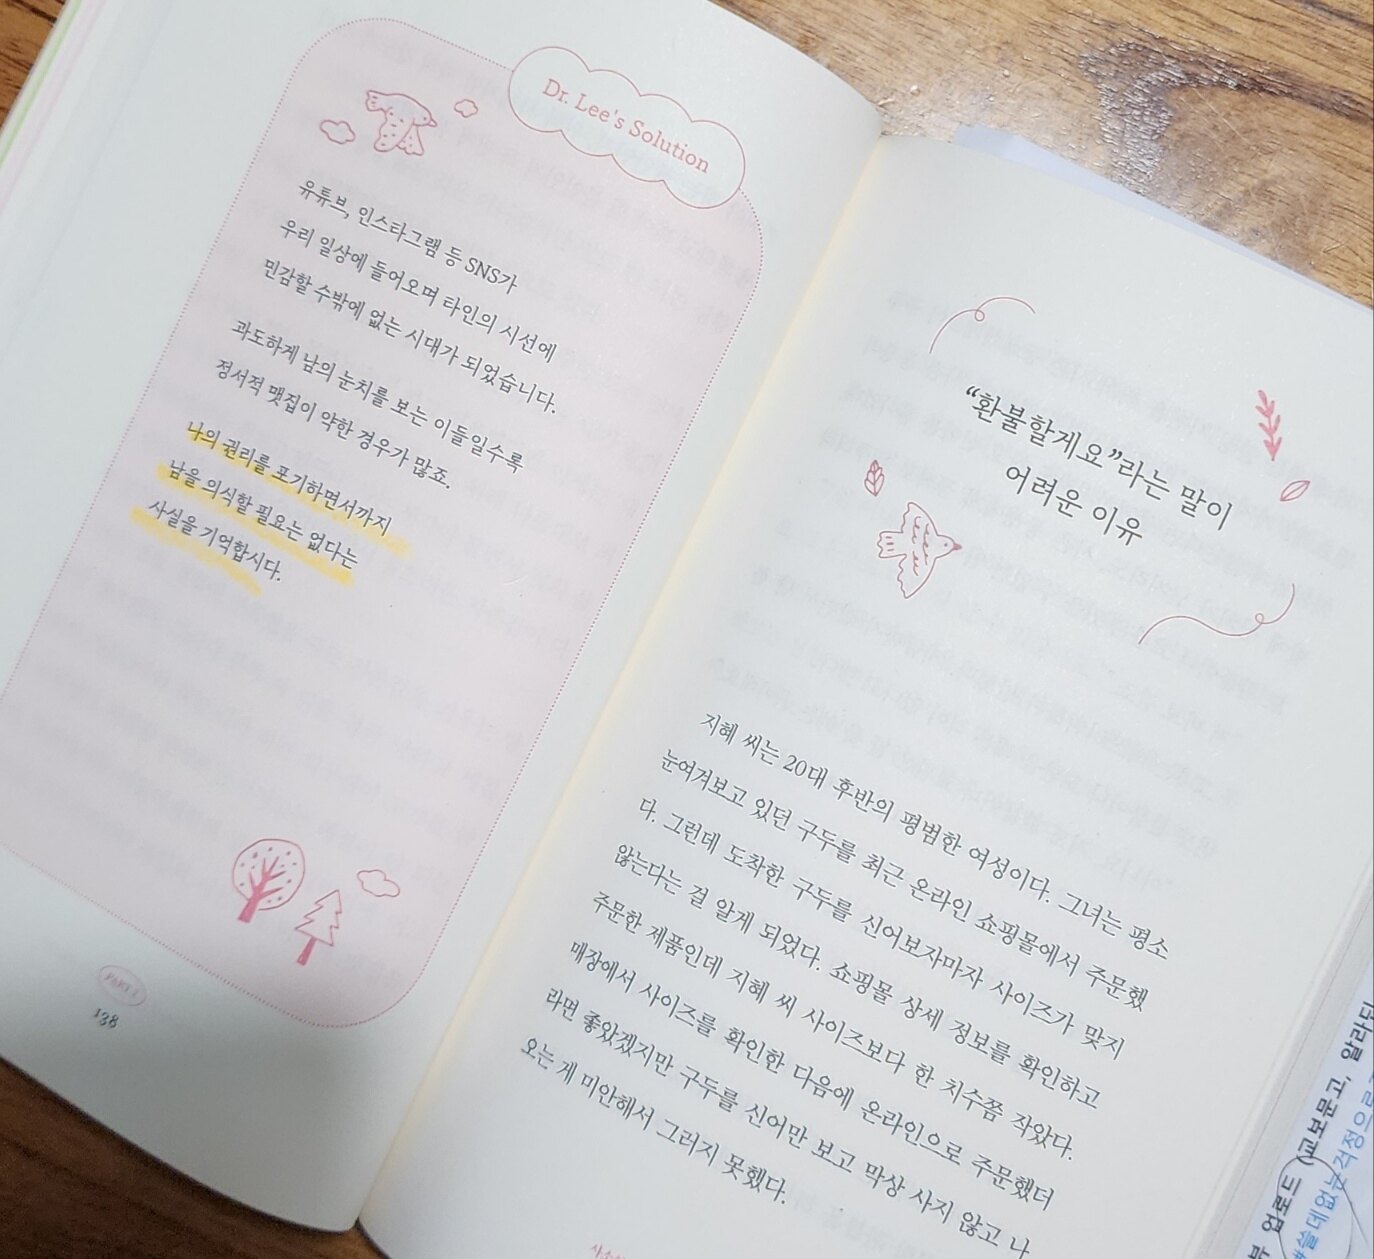 Dr. Lee's Solution
유튜브, 인스타그램 등 SNS가
우리 일상에 들어오며 타인의 시선에
민감할 수밖에 없는 시대가 되었습니다.
과도하게 남의 눈치를 보는 이들일수록
정서적 맷집이 약한 경우가 많죠.
나의 권리를 포기하면서까지
남을 의식할 필요는 없다는
사실을 기억합시다.
138
“환불할게요”라는 말이
어려운 이유
지혜 씨는 20대 후반의 평범한 여성이다. 그녀는 평소
눈여겨보고 있던 구두를 최근 온라인 쇼핑몰에서 주문했
다. 그런데 도착한 구두를 신어보자마자 사이즈가 맞지
않는다는 걸 알게 되었다. 쇼핑몰 상세 정보를 확인하고
주문한 제품인데 지혜 씨 사이즈보다 한 치수쯤 작았다.
매장에서 사이즈를 확인한 다음에 온라인으로 주문했더
라면 좋았겠지만 구두를 신어만 보고 막상 사지 않고 나
오는 게 미안해서 그러지 못했다.
업로드 (교보문고, 알라딘
#쓸데없는걱정으로